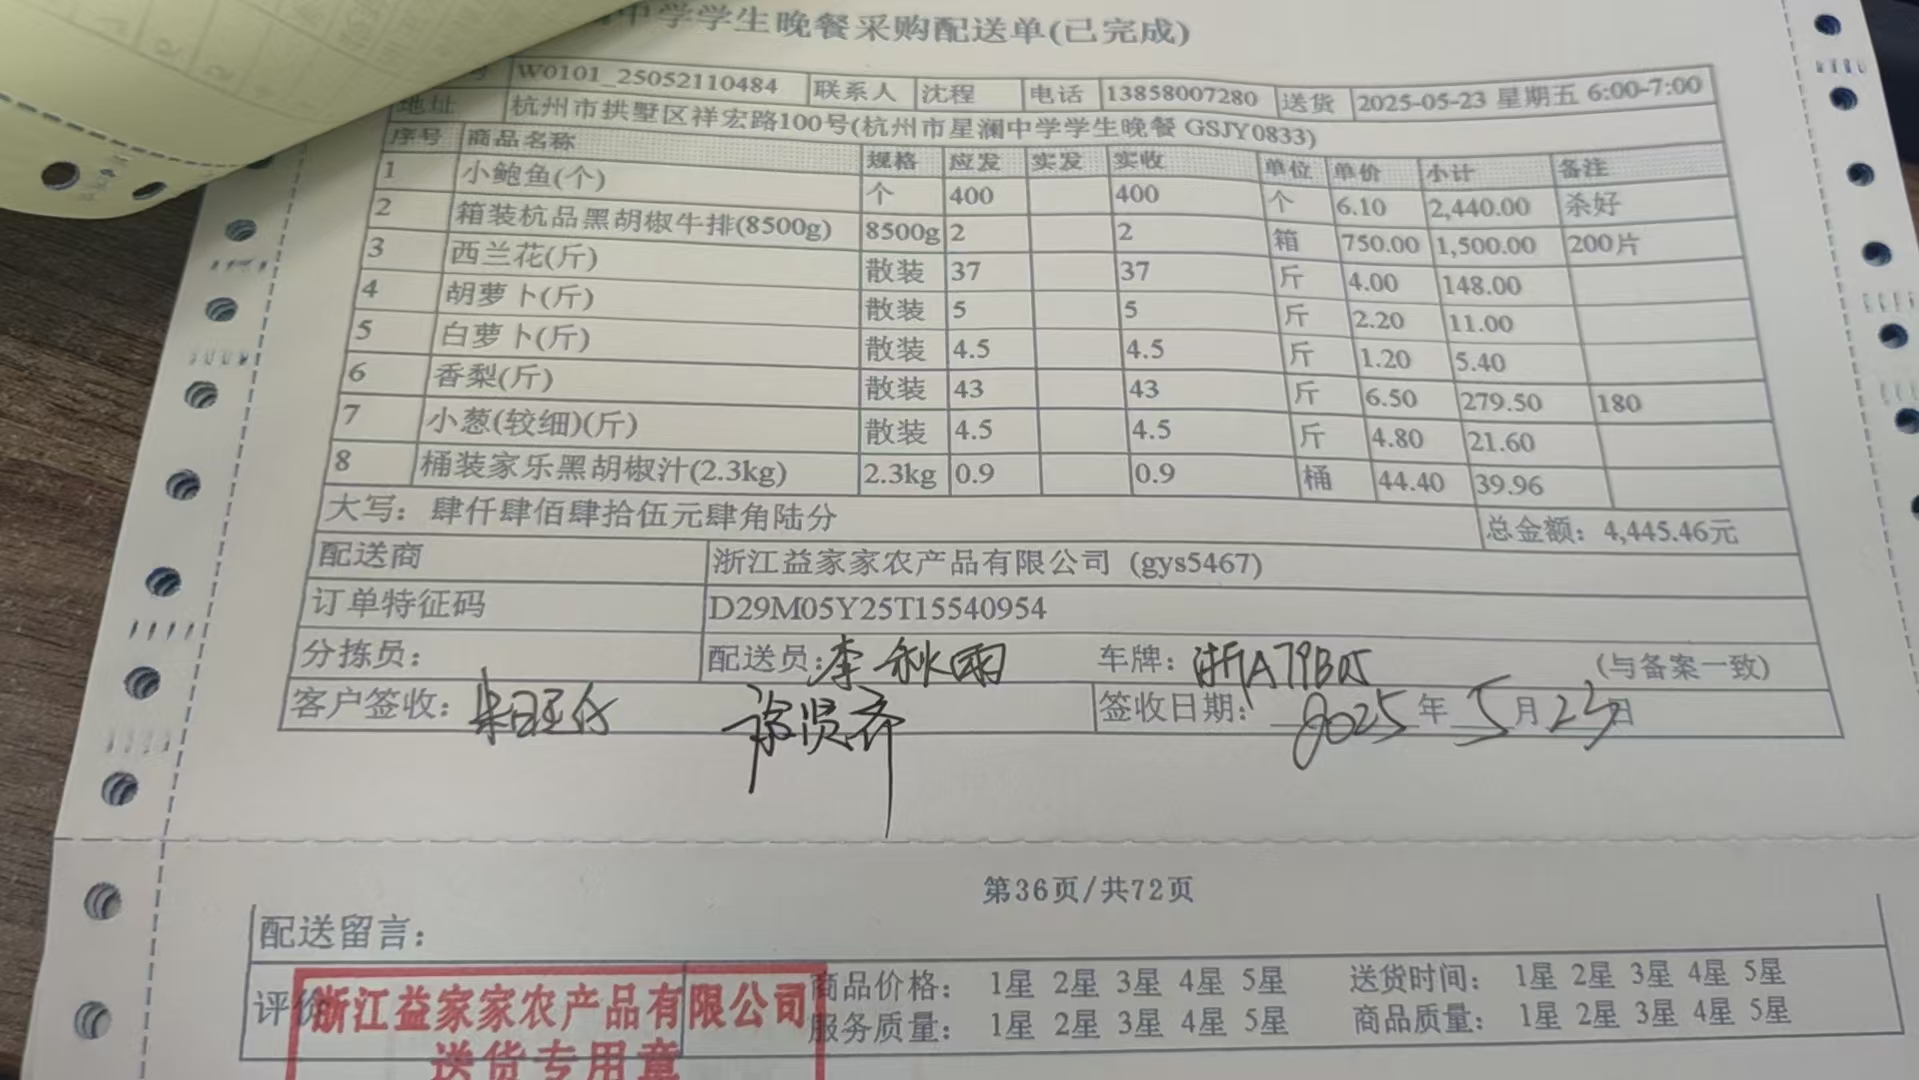 中学学生晚餐采购配送单(已完成)
号 W0101_25052110484 联系人 沈程 电话 13858007280 送货 2025-05-23 星期五 6:00-7:00
地址 杭州市拱墅区祥宏路100号(杭州市星澜中学学生晚餐 GSJY0833)
序号 商品名称 规格 应发 实发 实收 单位 单价 小计 备注
1 小鲍鱼(个) 个 400 400 个 6.10 2,440.00 杀好
2 箱装杭品黑胡椒牛排(8500g) 8500g 2 2 箱 750.00 1,500.00 200片
3 西兰花(斤) 散装 37 37 斤 4.00 148.00
4 胡萝卜(斤) 散装 5 5 斤 2.20 11.00
5 白萝卜(斤) 散装 4.5 4.5 斤 1.20 5.40
6 香梨(斤) 散装 43 43 斤 6.50 279.50 180
7 小葱(较细)(斤) 散装 4.5 4.5 斤 4.80 21.60
8 桶装家乐黑胡椒汁(2.3kg) 2.3kg 0.9 0.9 桶 44.40 39.96
大写：肆仟肆佰肆拾伍元肆角陆分 总金额：4,445.46元
配送商 浙江益家家农产品有限公司 (gys5467)
订单特征码 D29M05Y25T15540954
分拣员： 配送员：李秋雨 车牌：浙A79B (与备案一致)
客户签收： 徐贤齐 签收日期： 2025年5月23日
第36页/共72页
配送留言：
评价 商品价格： 1星 2星 3星 4星 5星 送货时间： 1星 2星 3星 4星 5星
服务质量： 1星 2星 3星 4星 5星 商品质量： 1星 2星 3星 4星 5星
浙江益家家农产品有限公司
送货专用章